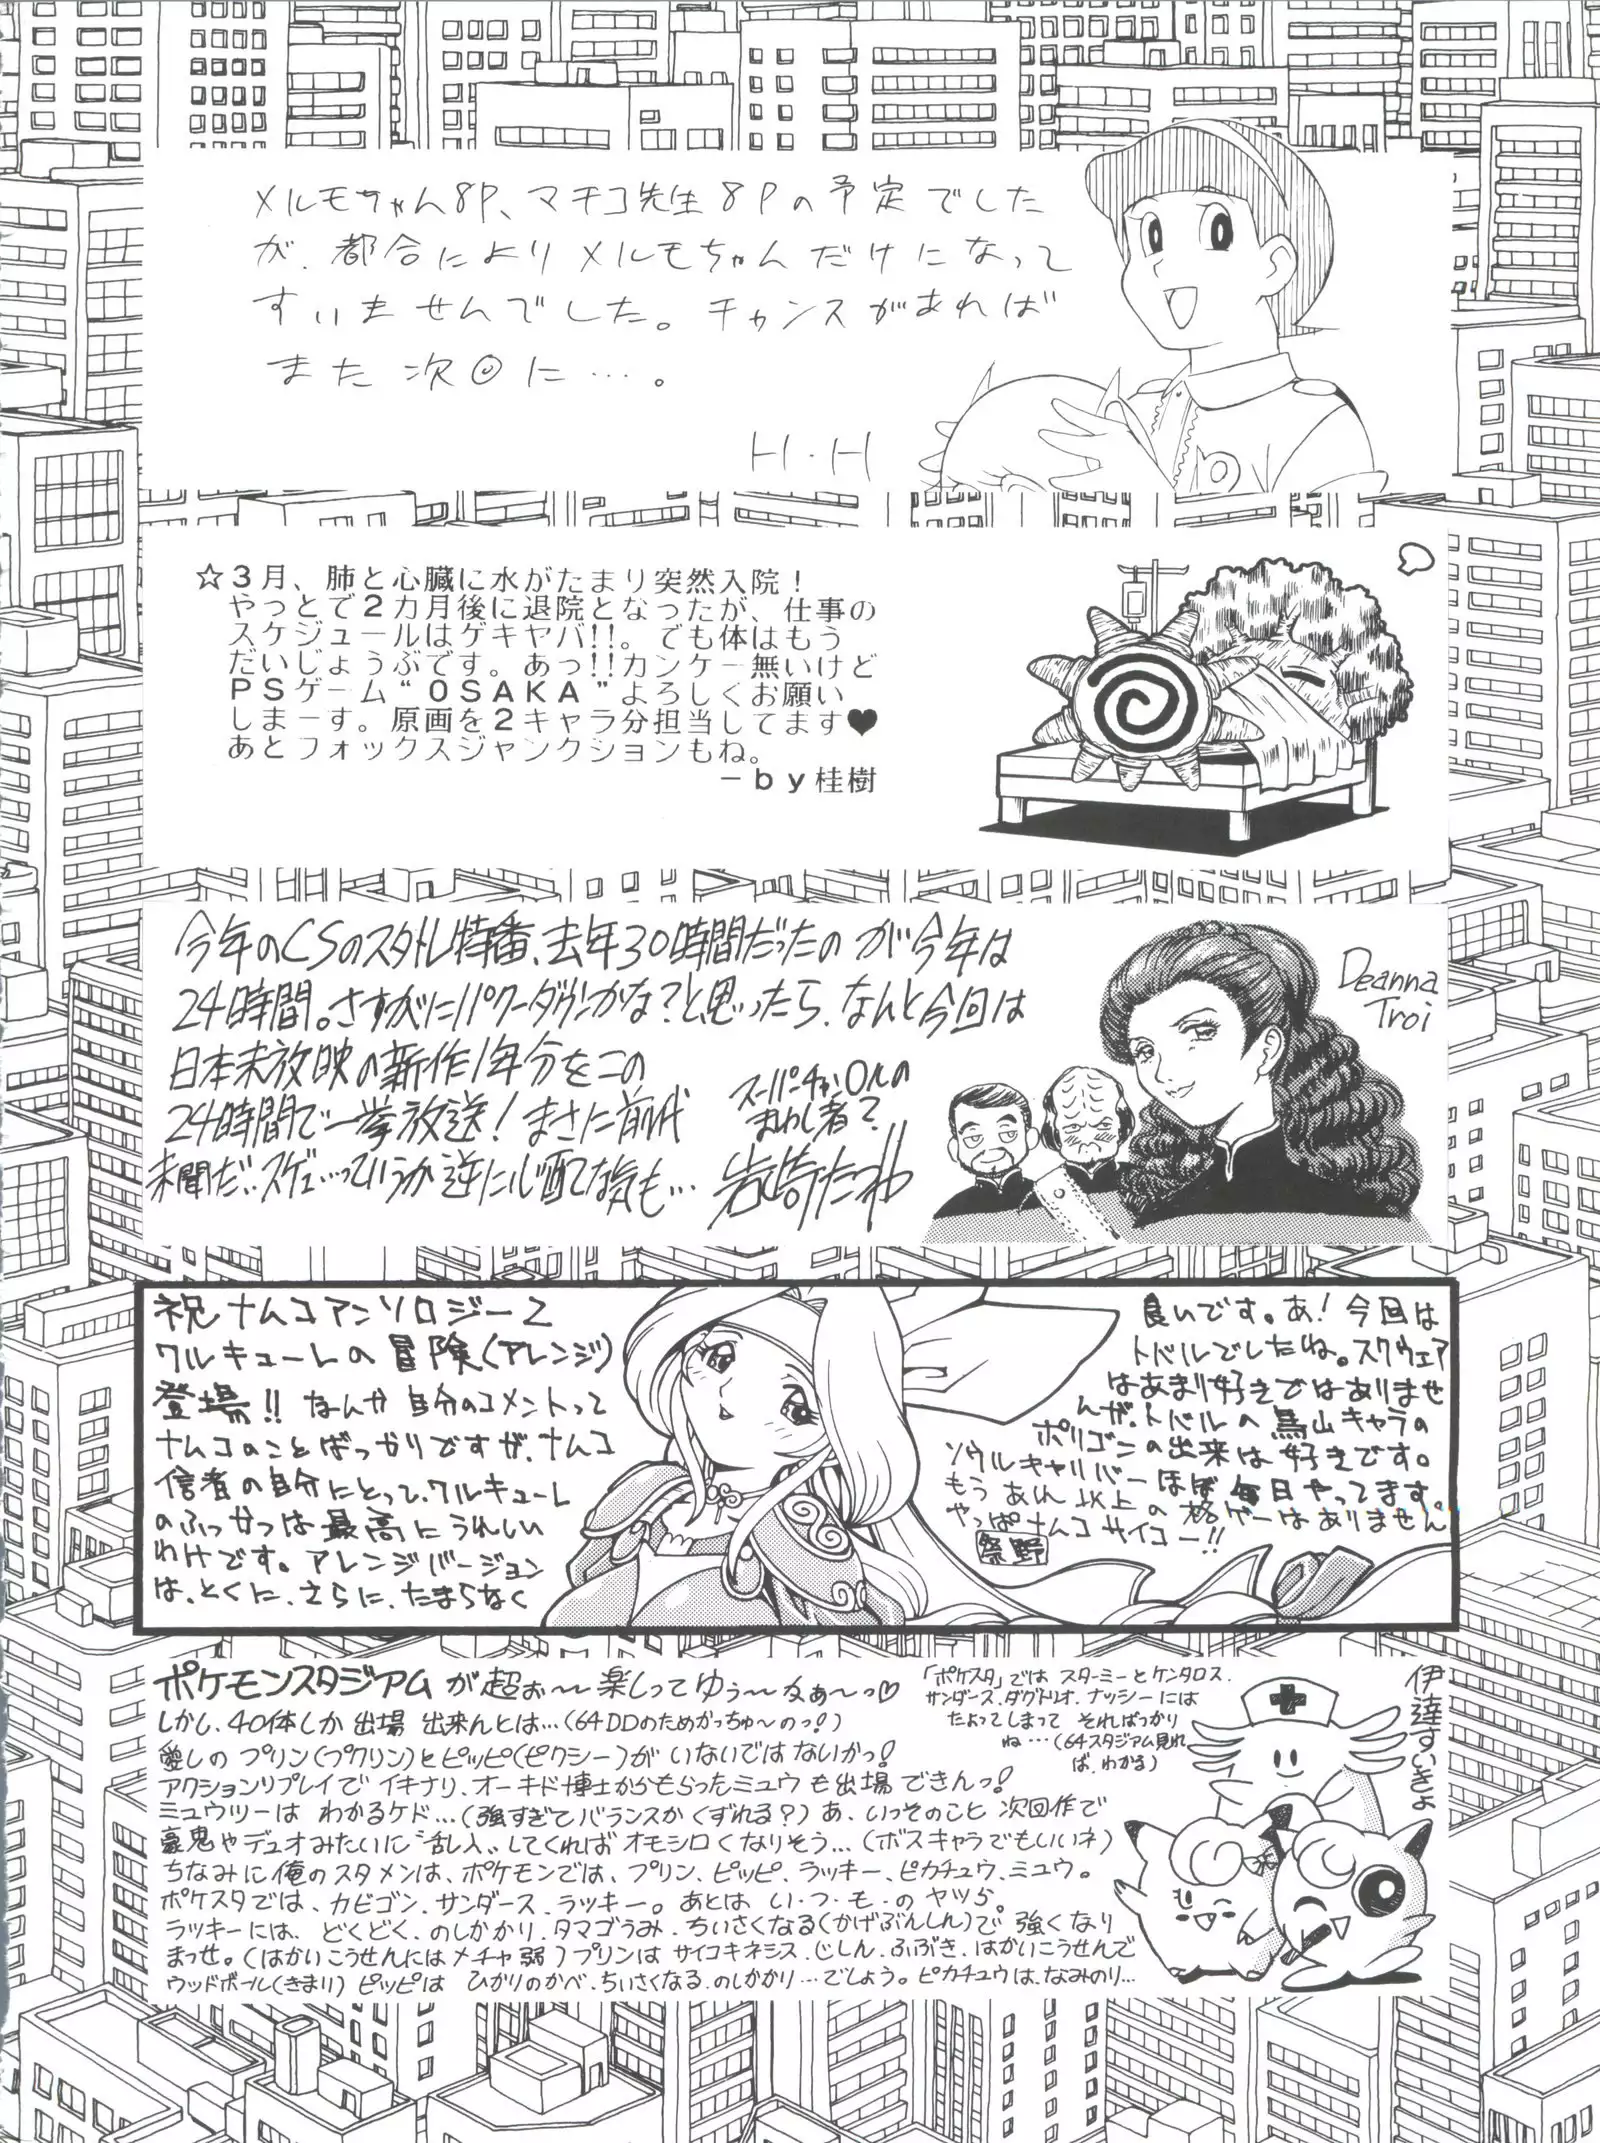 メルモちゃん8P、マチコ先生8Pの予定でした
が、都合によりメルモちゃんだけになって
すいませんでした。チャンスがあれば
また次回に…。
H・H
☆3月、肺と心臓に水がたまり突然入院!
やっとで2カ月後に退院となったが、仕事の
スケジュールはゲキヤバ!!。でも体はもう
だいじょうぶです。あっ!!カンケー無いけど
PSゲーム“OSAKA”よろしくお願い
しまーす。原画を2キャラ分担当してます♥
あとフォックスジャンクションもね。
－by桂樹
今年のCSのスタトレ特番、去年30時間だったのが今年は
24時間。さすがにパワーダウンかな?と思ったら、なんと今回は
日本未放映の新作1年分をこの
24時間で一挙放送!まさに前代
未聞だ…スゲェ…っていうか逆に心配な気も…
スーパーチャンOルの
まわし者?
岩崎たつわ
Deanna
Troi
祝ナムコアンソロジー2
ワルキューレの冒険(アレンジ)
登場!!なんか自分のコメントって
ナムコのことばっかりですが、ナムコ
信者の自分にとって、ワルキューレ
のふっかつは最高にうれしい
わけです。アレンジバージョン
は、とくに、さらに、たまらなく
良いです。あ!今回は
トバルでしたね。スクウェア
はあまり好きではありませ
んが、トバルの鳥山キャラの
ポリゴンの出来は好きです。
ソウルキャリバーほぼ毎日やってます。
もうあれ以上の格ゲーはありません。
やっぱナムコサイコー!!
祭野
ポケモンスタジアムが超ぉ〜楽しってゆぅ〜なぁ〜っ♡
しかし、40体しか出場出来んとは…(64DDのためがっちゅ〜のっ!)
愛しのプリン(プクリン)とピッピ(ピクシー)がいないではないかっ!
アクションリプレイでイキナリ、オーキド博士からもらったミュウも出場できんっ!
ミュウツーはわかるケド…(強すぎてバランスがくずれる?)あ、いっそのこと次回作で
豪鬼やデュオみたいに〝乱入〟してくればオモシロくなりそう…(ボスキャラでもいいネ)
ちなみに俺のスタメンは、ポケモンでは、プリン、ピッピ、ラッキー、ピカチュウ、ミュウ。
ポケスタでは、カビゴン、サンダース、ラッキー。あとはい・つ・も・のヤツら。
ラッキーには、どくどく、のしかかり、タマゴうみ、ちいさくなる(かげぶんしん)で強くなり
まっせ。(はかいこうせんにはメチャ弱)プリンはサイコキネシス、じしん、ふぶき、はかいこうせんで
ウッドボール(きまり)ピッピはひかりのかべ、ちいさくなる、のしかかり…でしょう。ピカチュウは、なみのり…
「ポケスタ」ではスターミーとケンタロス、
サンダース、ダグトリオ、ナッシーには
たよってしまってそればっかり
ね…(64スタジアム見れ
ば、わかる)
伊達すいきょ